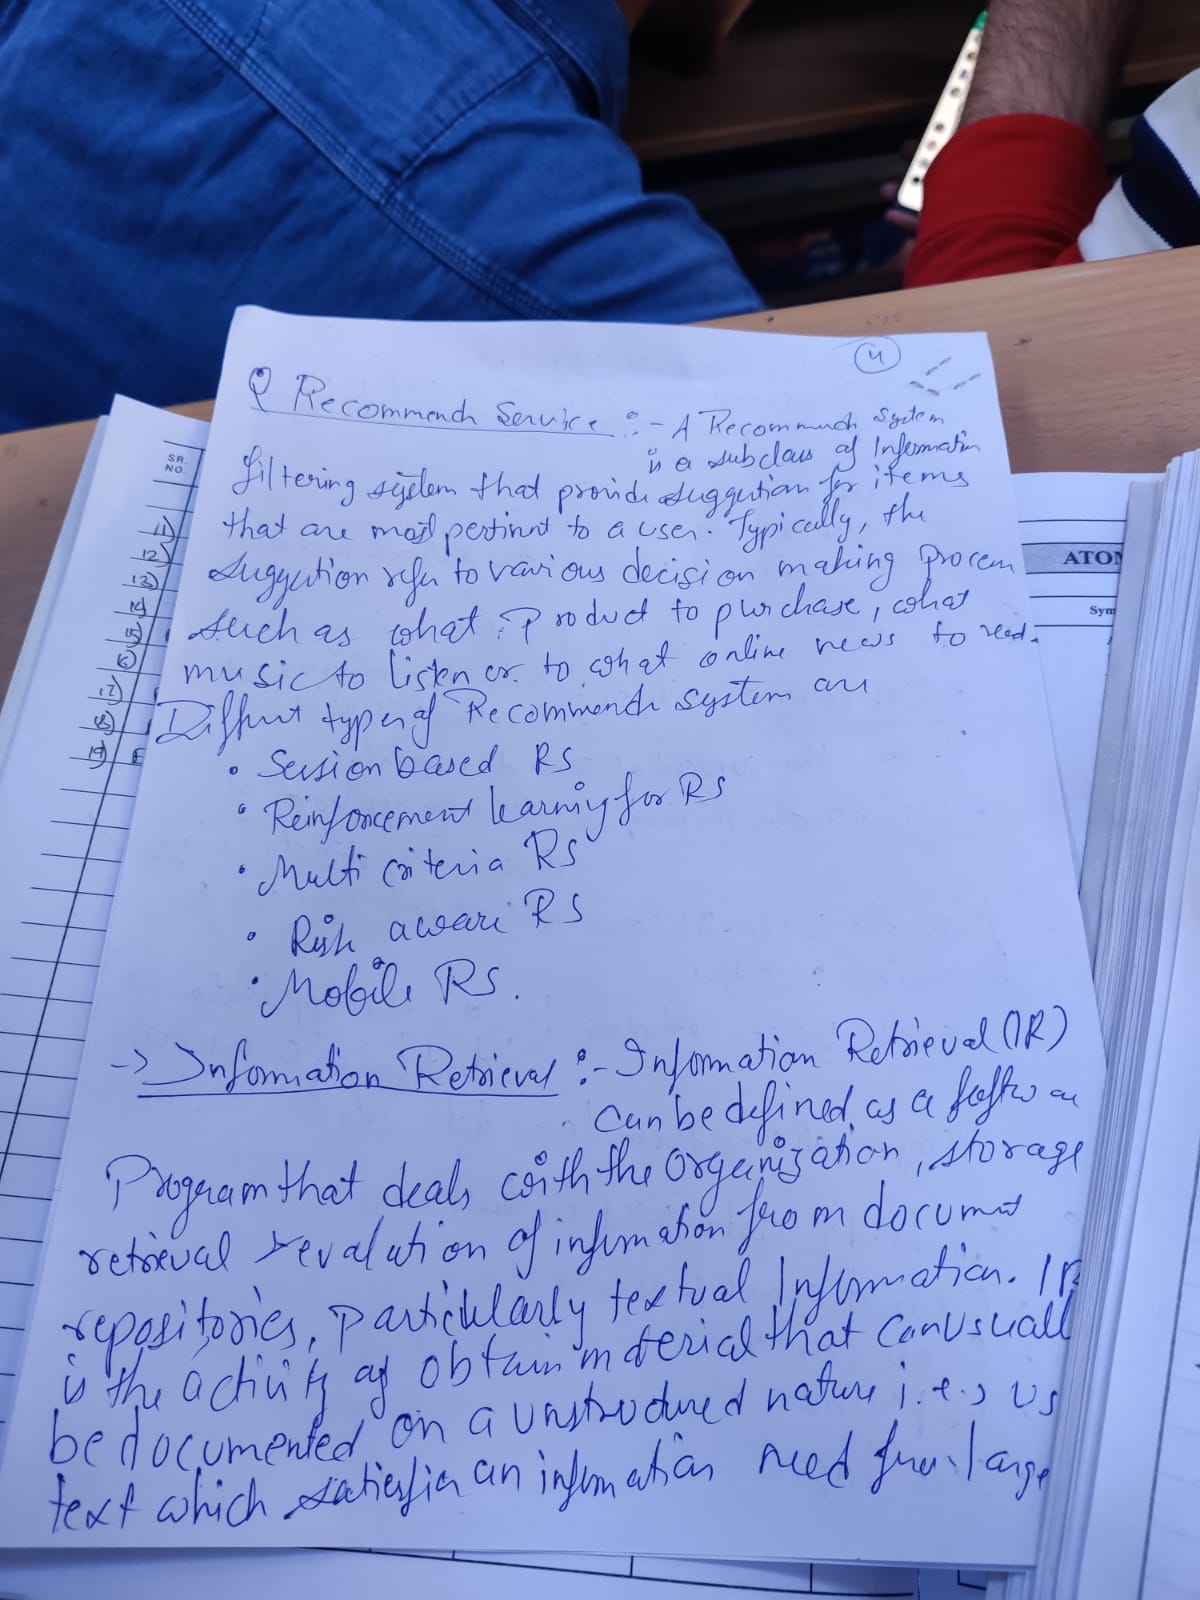 4
Q Recommend Service :- A Recommend System
is a subclass of Information
filtering system that provide suggestion for items
that are most pertinent to a user. Typically, the
suggestion refer to various decision making process
such as what product to purchase, what
music to listen or to what online news to read.
Different types of Recommend system are
• Session based RS
• Reinforcement learning for RS
• Multi criteria RS
• Risk aware RS
• Mobile RS.
-> Information Retrieval :- Information Retrieval (IR)
Can be defined as a software
Program that deals with the Organization, storage
retrieval evalution of information from document
repositories, Particularly textual Information. IR
is the activity of obtain material that can usuall
be documented on a unstructured nature i.e., us
text which satisfies an information need from large
SR.
NO.
11)
12)
13)
14
15)
17)
18)
19)
ATOM
Sym